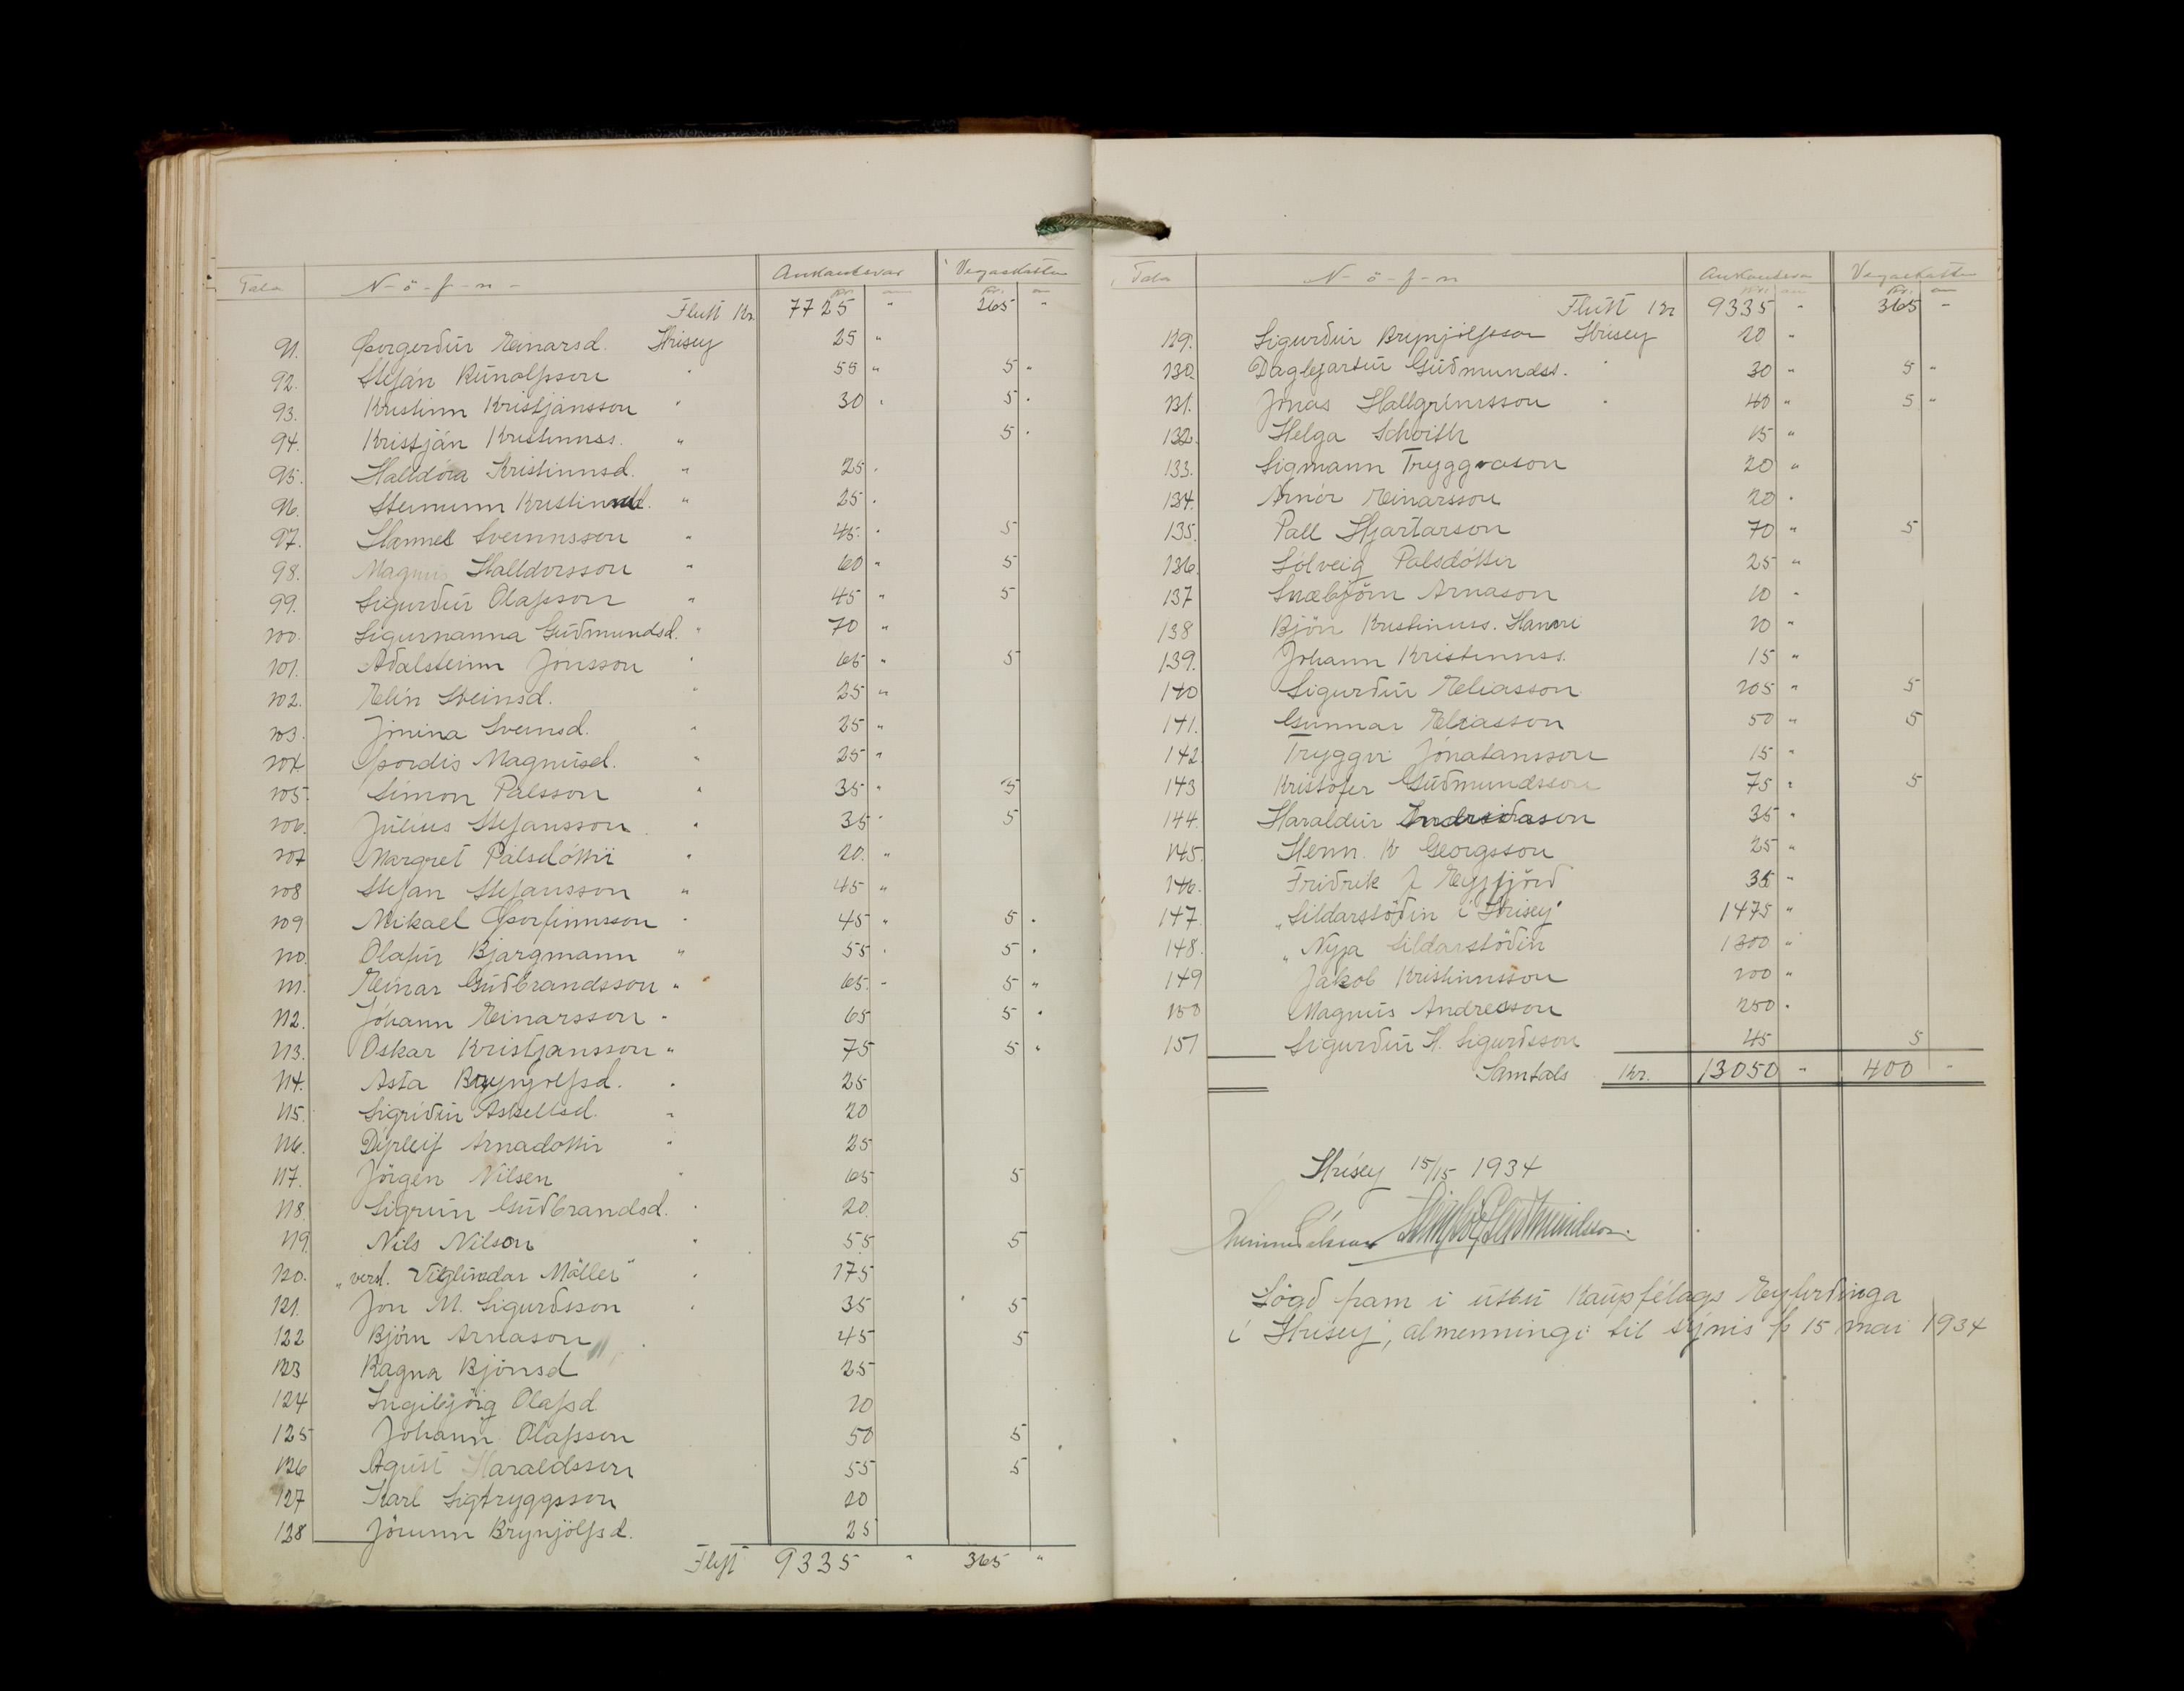 Tala N-ö-f-n- Aukautsvar Vegaskattur
kr. au kr. au
Flutt Kr 7725 " 265 "
91. Þorgerdúr Einarsd. Hrísey 25 "
92. Stefán Rúnolfsson " 55 " 5 "
93. Kristinn Kristjánsson " 30 " 5 "
94. Kristján Kristinnss. " 5 "
95. Halldóra Kristinnsd. " 25 "
96. Steinunn Kristinnsd. " 25 "
97. Hannes Sveinnsson " 45 " 5
98. Magnús Halldorsson " 60 " 5
99. Sigurdúr Olafsson " 45 " 5
100. Sigurnanna Gúdmundsd. " 70 "
101. Adalsteinn Jónsson " 65 " 5
102. Elín Steinsd. " 25 "
103. Jónina Sveinsd. " 25 "
104 Þordis Magnúsd. " 25 "
105. Símon Pálsson " 35 " 5
106. Júlíus Stefansson " 35 " 5
107 Margret Pálsdóttir " 20 "
108 Stefan Stefansson " 45 "
109 Mikael Þorfinnsson " 45 " 5 "
110. Olafúr Bjargmann " 55 " 5 "
111. Einar Gúdbrandsson " 65 " 5 "
112. Jóhann Einarsson " 65 5 "
113. Oskar Kristjansson " 75 5 "
114. Asta Brynjolfsd. " 25
115. Sigrídúr Askellsd. " 20
116. Dýrleif Arnadottir " 25
117. Jörgen Nilsen " 65 5
118. Sigrún Gúdbrandsd. " 20
119. Nils Nilson " 55 5
120. „versl. Viglúndar Möller" " 175
121. Jon M. Sigurdsson " 35 5
122 Björn Arnason " 45 5
123 Ragna Bjönsd 25
124 Ingibjörg Olafsd 20
125 Johann Olafsson 50 5
126 Agúst Haraldsson 55 5
127 Karl Sigtryggsson 20
128 Jórunn Brynjólfsd. 25
Flyt 9335 " 365 "
Tala N-ö-f-n Aukautsvar Vegaskattur
kr. au kr. au
Flutt Kr 9335 - 365 -
129. Sigurdúr Brynjólfsson Hrísey 20 "
130. Dagbjartúr Gúdmundss. " 30 " 5 "
131. Jónas Hallgrímsson " 40 " 5 "
132. Helga Schoith 15 "
133. Sigmann Tryggvason 20 "
134. Arnór Einarsson 20 "
135. Pall Hjartarson 70 " 5
136. Sólveig Palsdóttir 25 "
137 Snæbjörn Arnason 10 "
138 Bjön Kristinnss. Hamri 20 "
139. Johann Kristinnss. 15 "
140 Sigurdúr Eliasson 205 " 5
141. Gunnar Elíasson 50 " 5
142 Tryggvi Jónatansson 15 "
143 Kristófer Gúdmundsson 75 " 5
144. Haraldúr Indridason 35 "
145. Henn. Kr Georgsson 25 "
146. Fridrik J Eyfjörd 35 "
147 „Síldarstödin í Hrísey" 1475 "
148. „Nyja Síldarstödin 1300 "
149 Jakob Kristinnsson 200 "
150 Magnús Andresson 250 "
151 Sigurdúr H. Sigurdsson 45 5
Samtals Kr. 13050 - 400 -
Hrísey 15/15 1934
Gudmundsson.
Lögd fram i útbú Kaupfélags Eyfirdinga
í "Hrísey", almenningi til sýnis þ 15 mai 1934